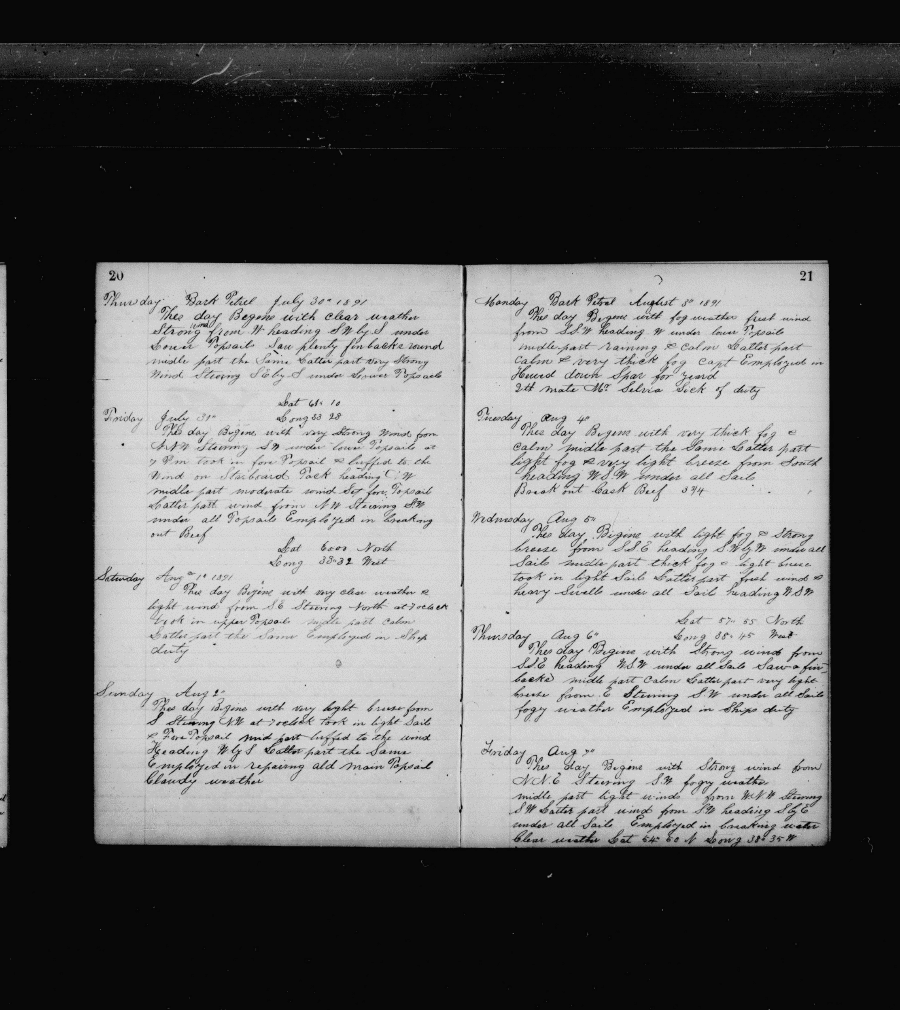 20
Thursday Bark Petrel July 30th 1891
Thes day Begens with clear weather
Strong wind from W heading SW by S under
Lower Topsails Saw plenty finbacks round
midle part the Same Latter part very Strong
Wind Stering S by S under Lower Topsails
Lat 61 10
Long 33 28
Friday July 31st
Thes day Begins with very Strong Wind from
NNW Stering SW under lower Topsails at
7 Pm took in fore Topsail & luffed to the
Wind on Starboard Tack heading W
midle part moderate wind Set fore Topsail
Latter part wind from NW Stering SW
under all Topsails Employed in breaking
out Beef
Lat 60 00 North
Long 33-32 West
Saturday Aug 1st 1891
Thes day Begins with very clear weather &
light wind from SE Stering North at 7 oclock
took in upper Topsails midle part calm
Latter part the Same Employed in Ship
duty
Sunday Aug 2
Thes day Begins with very light breese from
S Stering NW at 7 oclock took in light Sails
& Fore Topsail mid part luffed to the wind
Heading W by S Latter part the Same
Employed in repairing old main Topsail
Cloudy weather
21
Monday Bark Petrel August 3d 1891
Thes day Begins with fog weather fresh wind
from SSW heading W under lower Topsails
midle part raining & calm Latter part
Calm & very thick fog Capt Employed in
Hewed down Spar for yard
2th mate Mr Selvia Sick of duty
Tuesday Aug 4
Thes day Begens with very thick fog &
Calm midle part the Same Latter part
light fog & very light breese from South
heading WSW under all Sails
Break out Cask Beef 394
Wednesday Aug 5
Thes day Begins with light fog & Strong
breese from SSE heading SW by W under all
Sails midle part thick fog & light breese
took in light Sails Latter part fresh wind &
heavy Swells under all Sail heading WSW
Lat 57 55 North
Long 35-45 West
Thursday Aug 6
Thes day Begins with Strong wind from
SSE heading WSW under all Sails Saw a fin
backe midle part Calm Latter part very light
breese from E Stering SW under all Sails
fogy weather Employed in Ships duty
Friday Aug 7
Thes day Begins with Strong wind from
NNE Stering SW fogy weather
midle part light winds from WNW Stering
SW Latter part wind from SW heading S by E
under all Sails Employed in breaking water
Clear weather Lat 54 50 N Long 38 35 W